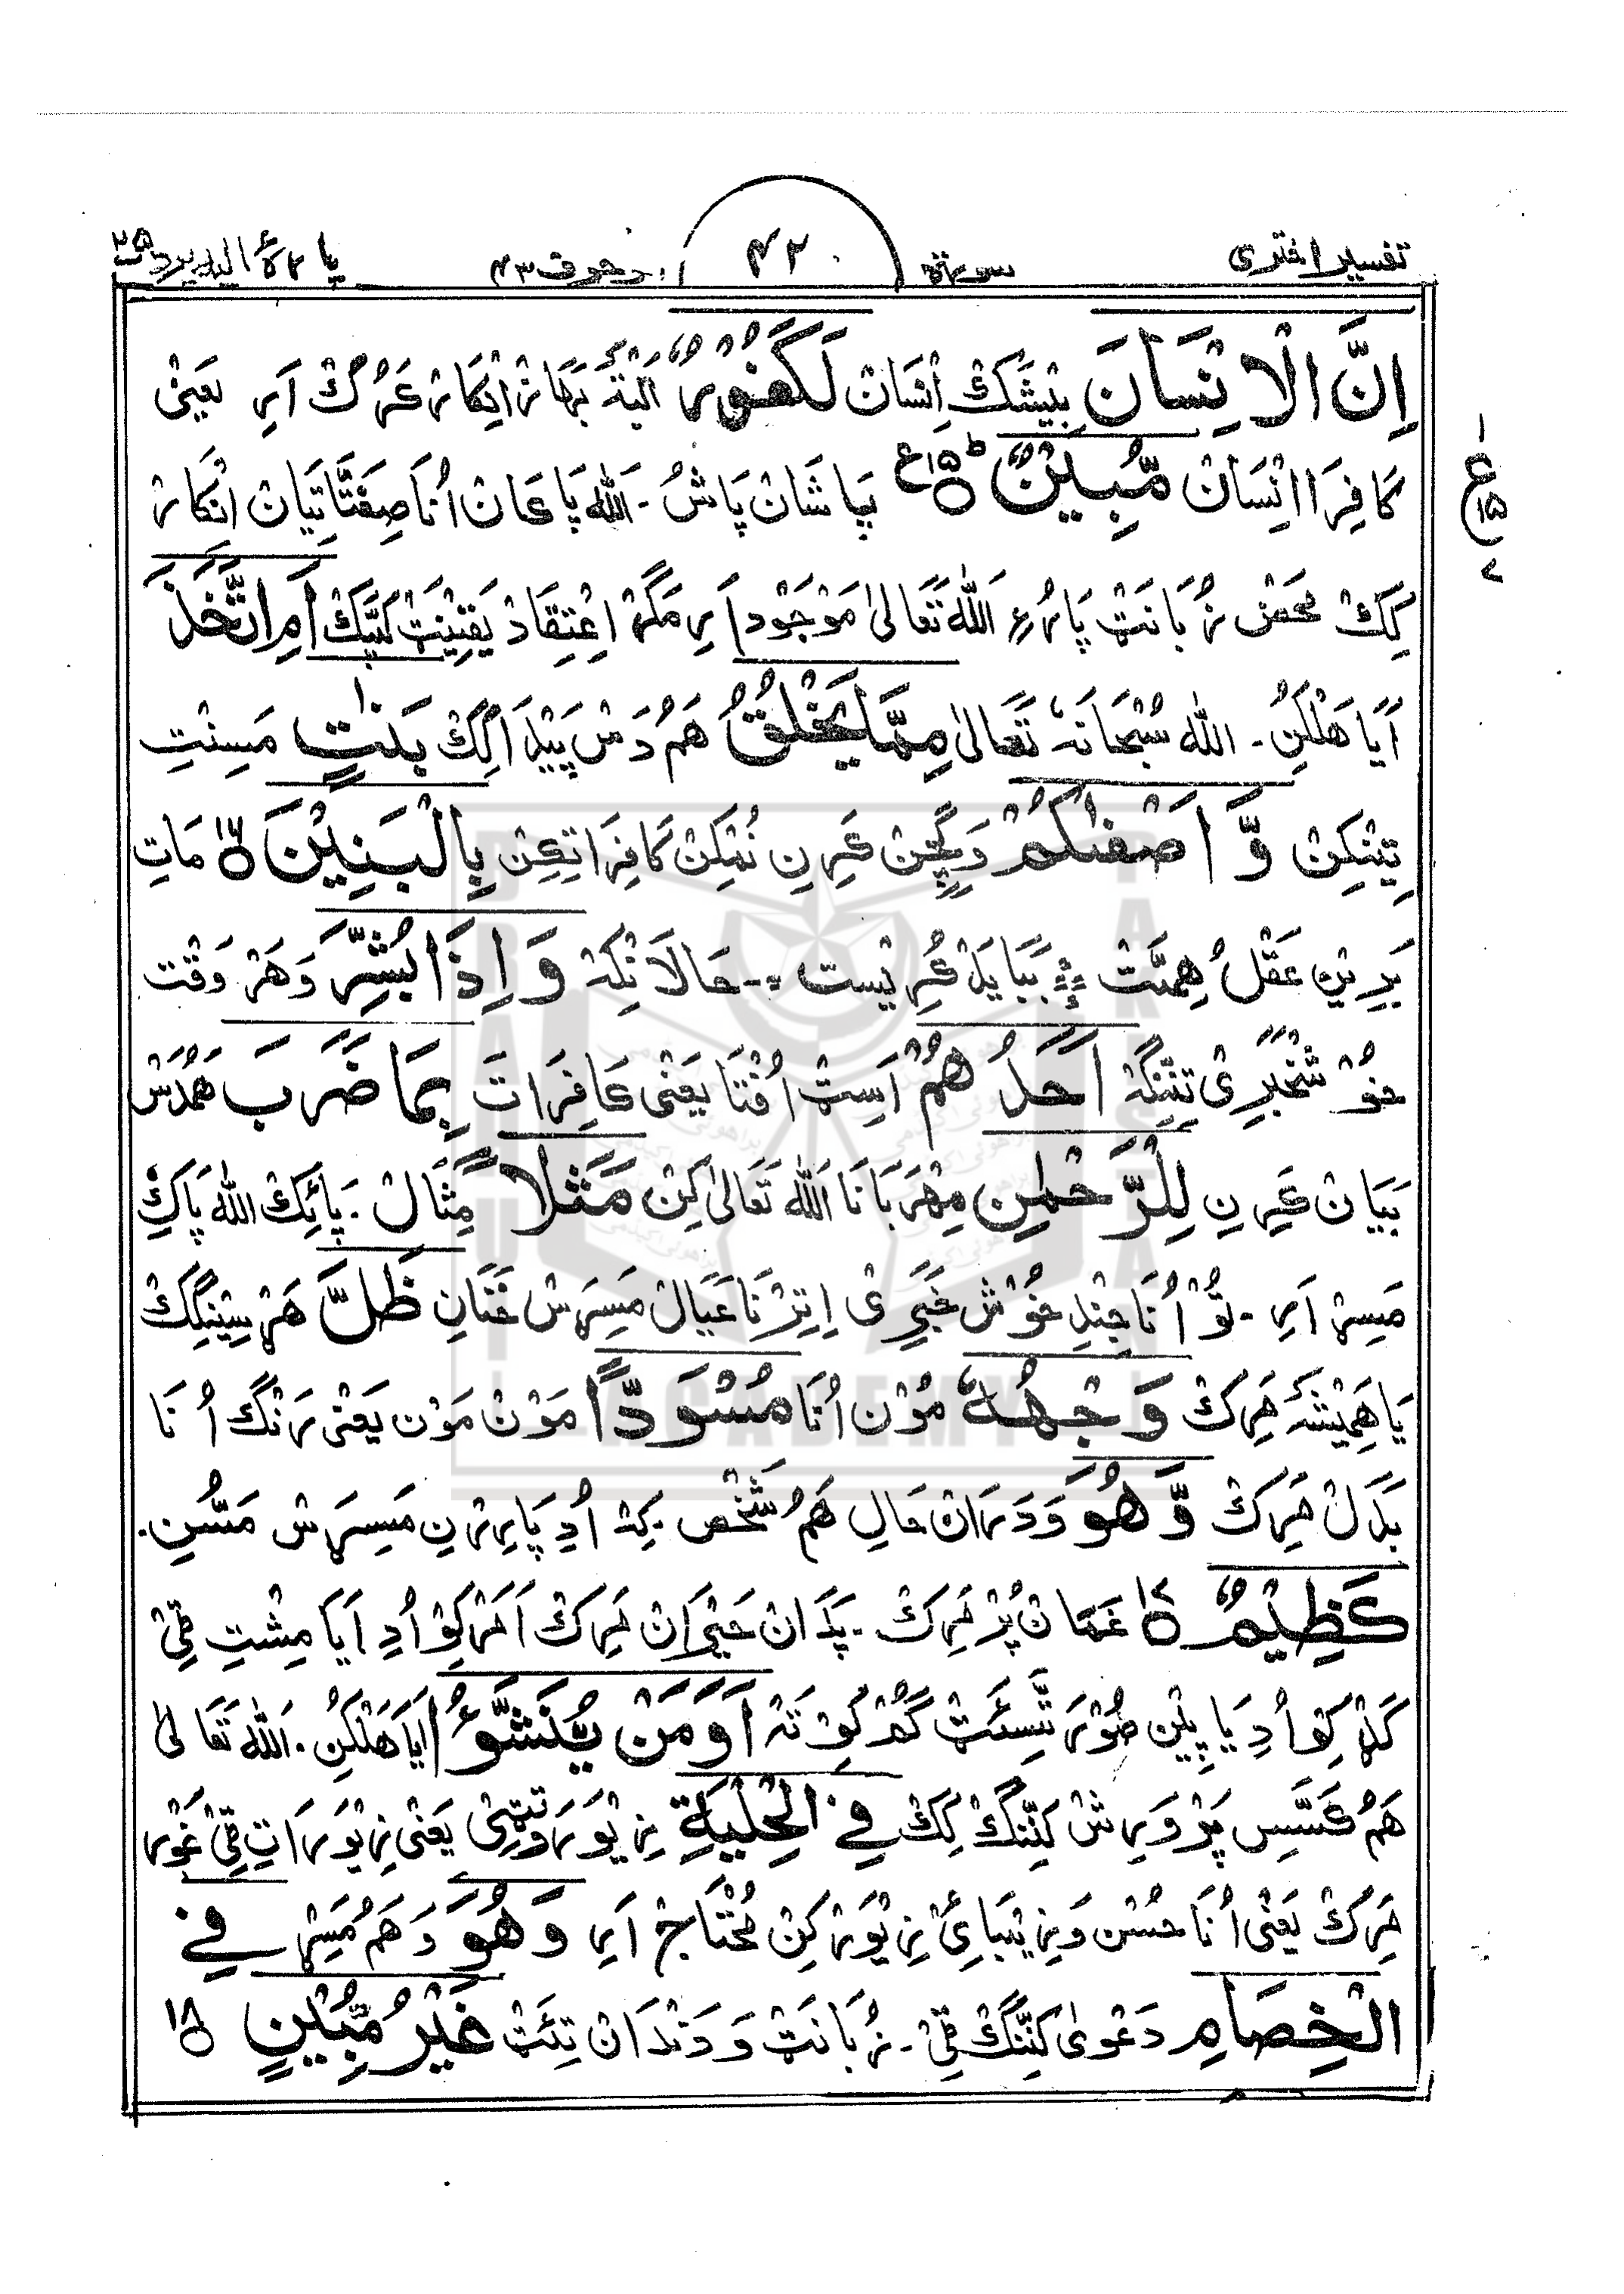 تفسیر اختری سورۃ ۴۲ زخرف ۴۳ پارۂ الیه یرد ۲۵
اِنَّ الْاِنْسَانَ بیْشَکْ اِنْسَانْ لَكَفُوْرٌ اَلبَتَّہ بَھَازْ اِنْکَارْ کَرُکْ اَرِ یعنی
کَافِرَا اِنْسَانْ مُّبِيْنٌ ؕ۱۵ ع بَیَا شَانْ پَاشْ ۔ اَللّٰه پَاکَانْ اُنَا صِفَتَّاتِیَانْ اِنْکَارْ
کِکْ مَحَضْ زُبَانَتْ پَارِرِ اَللّٰه تَعَالیٰ مَوْجُوْد اَرِ مَگَرْ اِعْتِقَادْ یَقِیْنَتْ کَپَّکْ اَمِ اتَّخَذَ
اَیَا هَلْکُنْ ۔ اللّٰه سُبْحَانَهٗ تَعَالیٰ مِمَّا يَخْلُقُ هَمُ دَسْ پَیْدَا کِکْ بَنٰتٍ مَسِنْتِ
تِیْنکِنْ وَّ اَصْفٰىكُمْ وَ گِچِّنْ کَرِنِ نُمْکِنْ کَافِرَاتِکِنْ بِالْبَنِيْنَ ۱۶ مَاتِ
بَرِیْن عَقْلُ هِمَّتْ بَبَایَدْ گِرِیْسْت ۔ حَالَانِکہْ وَ اِذَا بُشِّرَ وَ هَرْ وَقْت
خُوْشْخَبَرِیْ تِنِنْگہْ اَحَدُ هُمْ اَسِٹ اُفْتَا یَعْنِی کَافِرَاتَ بِمَا ضَرَبَ هَمُدَسْ
بَیَانْ کَرِنِ لِلرَّحْمٰنِ مِهْرَبَانَا اَللّٰه تَعَالیٰ کِنْ مَثَلًا مِثَالْ ۔ پَائِکْ اللّٰه پَاکِ
مَسِڑْ اَرِ ۔ تَوْ اُنَا جِنْدِ خُوْشْ خَبَرِیْ اِتِرْ نَا عَیَالْ مَسِڑَسْ خَنَانِ ظَلَّ هَرْسِیْنِگِکْ
یَا هَمِیْشَہ مَرِکْ وَجْهُهٗ مُوْن اُنَا مُسْوَدًّا مَوْنْ مَوْن یَعْنِیْ رَنْگ اُنَا
بَدَلْ مَرِکْ وَّ هُوَ وَ دَرَانْ حَالِ هَمُ شَخْص کِہْ اُدِ پَارِرْنِ مَسِڑَسْ مَسُّنِ ۔
كَظِيْمٌ ۱۷ غَمَانْ پُرْ مَرِکْ ۔ پَدَانْ حَیْرَانْ مَرِکْ اَمَرْ کِوْ اُدِ اَیَا مِشْتِ قِیْ
گَڈْ کِوْ اُدِ یَا پِیْن صُوْرَ تَّسِئَتْ گُمْ کِوْ تَہْ اَوَمَنْ يُّنَشَّؤُ اَیَا هَلْکُنِ ۔ اَللّٰه تَعَالیٰ
هَمُ کَسَّسِ پَرْوَرِشْ کَنِّنْگْ کِکْ فِى الْحِلْيَةِ زِیْوَرَوْتیٹِیْ یَعْنِی زِیْوَرَاتِ قِیْ غَوْر
مَرِکْ یَعْنِیْ اُنَا حُسْن وَ زِیْبَائِیْ زِیْوَرْ کِنْ مُحْتَاجْ اَرِ وَ هُوَ وَ هَمُ مَسِڑْ فِى
الْخِصَامِ دَعْویٰ کَنِّنْگْ قِیْ ۔ زُبَانَتْ وَ دَنْدَانْ تِئَتْ غَيْرُ مُبِيْنٍ ۱۸
ع
۱۵
۷